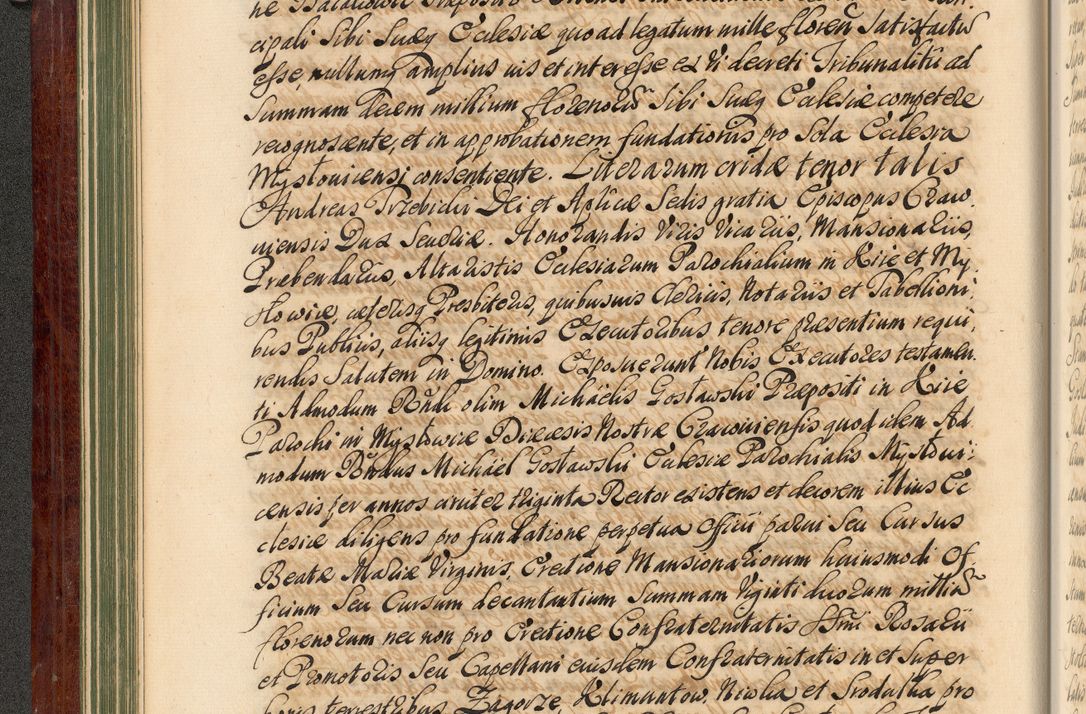 cipali Sibi Suæq Ecclesiæ quoad legatum mille floren Satisfactũ
esse, nullumq amplius ius et interesse ex Vi decreti Tribunalitii ad
Summam decem millium florenorũ Sibi Suæq Ecclesiæ competere
recognoscente, et in approbationem fundationis pro Sola Ecclesia
Myslouicensi consentiente. Literarum eridæ tenor talis
Andreas Trzebicki Dei et Aplicæ Sedis gratia Episcopus Craco.
uiensis Dux Seueriæ. Honorandis Viris Vicariis, Mansionariis,
Præbendariis, Altaristis Ecclesiarum Parochialium in Xiie et My,
slowice, cæterisq Presbiteris, quibusuis Clericis, Notariis et Tabellioni,
bus Publicis, aliisq legitimis Executoribus tenore præsentium requi,
rendis Salutem in Domino. Exposuerunt Nobis Executores testamen.
ti Admodum Rndi olim Michaelis Gosławski Præpositi in Xiie
Parochi in Mysłowice Diæcesis Nostræ Cracouiensis quod idem Ad
modum Rndus Michael Gosławski Ecclesiæ Parochialis Mysłoui,
censis per annos circiter triginta Rector existens et decorem illius Ec
clesiæ diligens pro fundatione perpetua officii parui Seu Cursus
Beatæ Mariæ Virginis, Erectione Mansionariorum huiusmodi Of,
ficium Seu Cursum decantantium Summam Viginti duorum milliũ
florenorum nec non pro Erectione Confraternitatis SSmi Rosarii
et Promotoris Seu Capellani eiusdem Confraternitatis in et Super
bonis terrestribus Zagorze, Klimantow, Niwka et Srodulka pro